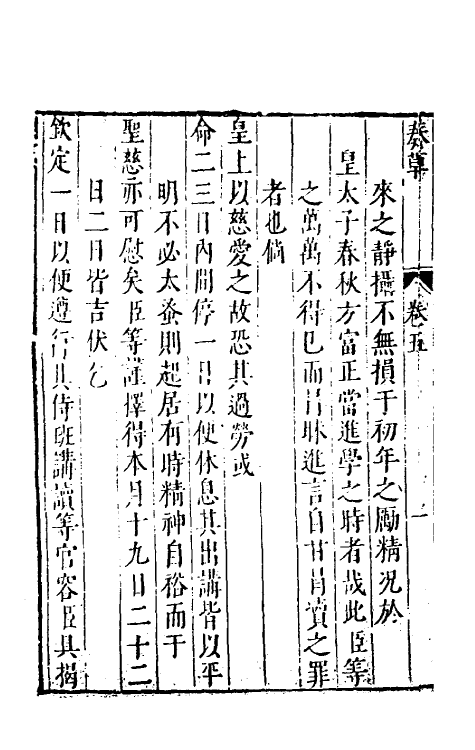 奏草
卷五
一
來之靜攝不無損于初年之勵精況於
皇太子春秋方富正當進學之時者哉此臣等
之萬萬不得已而冒昧進言自甘冒瀆之罪
者也倘
皇上以慈愛之故恐其過勞或
命二三日內間停一日以便休息其出講皆以平
明不必太蚤則起居有時精神自裕而于
聖慈亦可慰矣臣等謹擇得本月十九日二十二
日二日皆吉伏乞
欽定一日以便遵行其侍班講讀等官容臣具揭